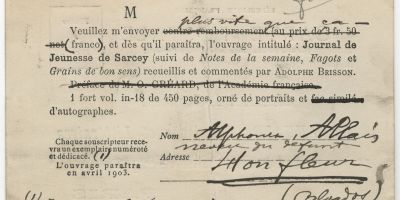 M
plus vite que ça
Veuillez m'envoyer contre remboursement (au prix de 3 fr. 50
net (franco), et dès qu'il paraîtra, l'ouvrage intitulé : Journal de
Jeunesse de Sarcey (suivi de Notes de la semaine, Fagots et
Grains de bon sens) recueillis et commentés par ADOLPHE BRISSON.
Préface de M. O. GRÉARD, de l'Académie française
1 fort vol. in-18 de 450 pages, orné de portraits et fac similé
d'autographes.
Chaque souscripteur rece-
vra un exemplaire numéroté
et dédicacé. (1)
L'ouvrage paraîtra
en avril 1903.
Nom Alphonse Allais
neveu du défunt
Adresse Honfleur
(1) (Calvados)